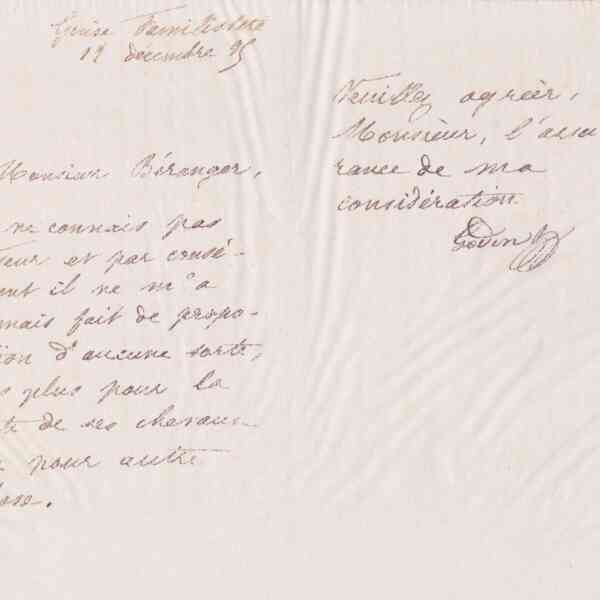 Guise Familistère
12 décembre 95
Monsieur Béranger,
ne connais pas
teur et par consé-
ent il ne m'a
mais fait de propo-
ion d'aucune sorte,
s plus pour la
te de ses chevaux
pour autre
ose.
Veuillez agréer,
Monsieur, l'assu
rance de ma
considération
Godin